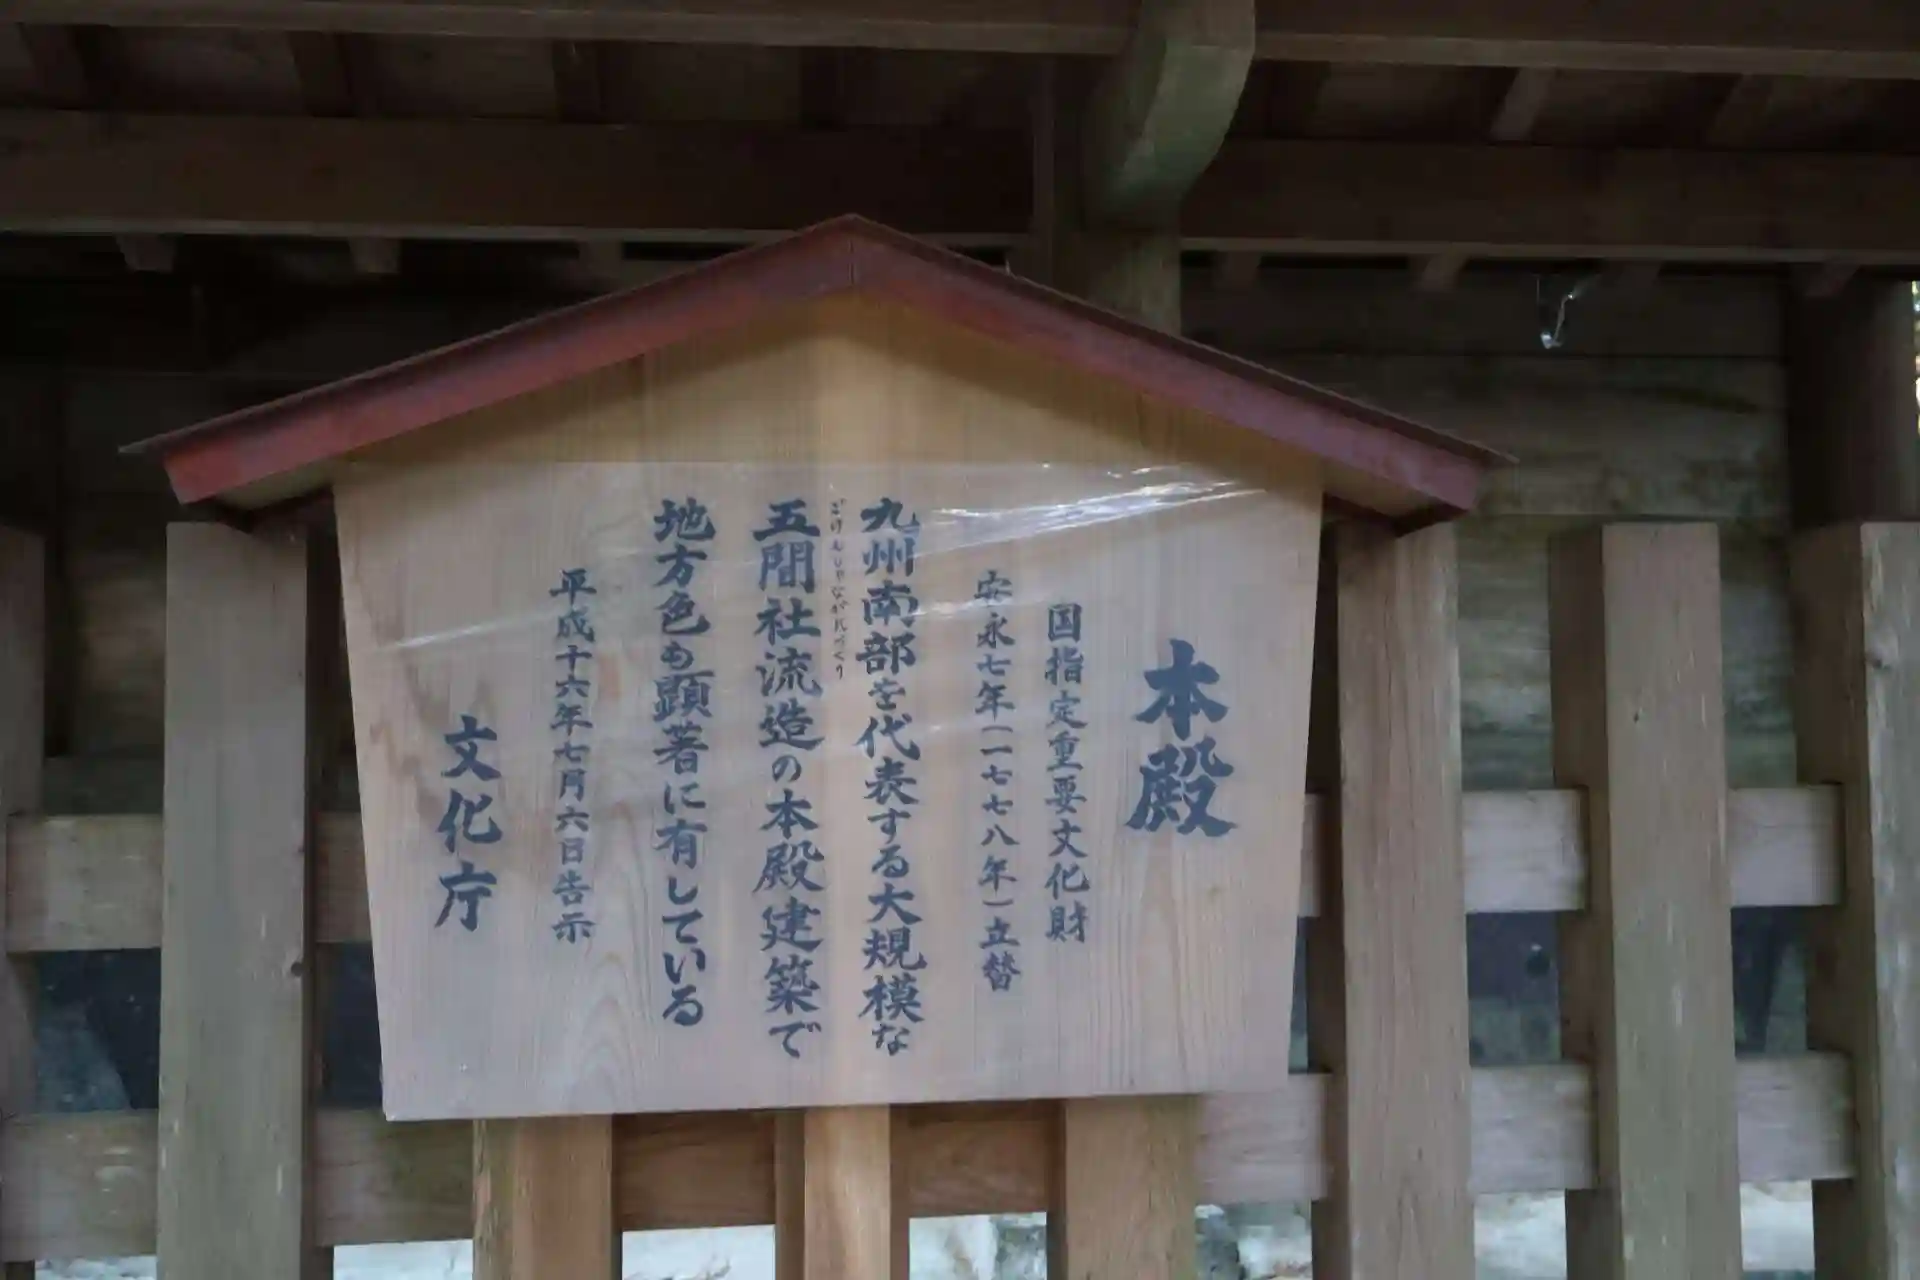 本殿
国指定重要文化財
安永七年(一七七八年)立替
九州南部を代表する大規模な
ごけんしゃながれづくり
五間社流造の本殿建築で
地方色も顕著に有している
平成十六年七月六日告示
文化庁